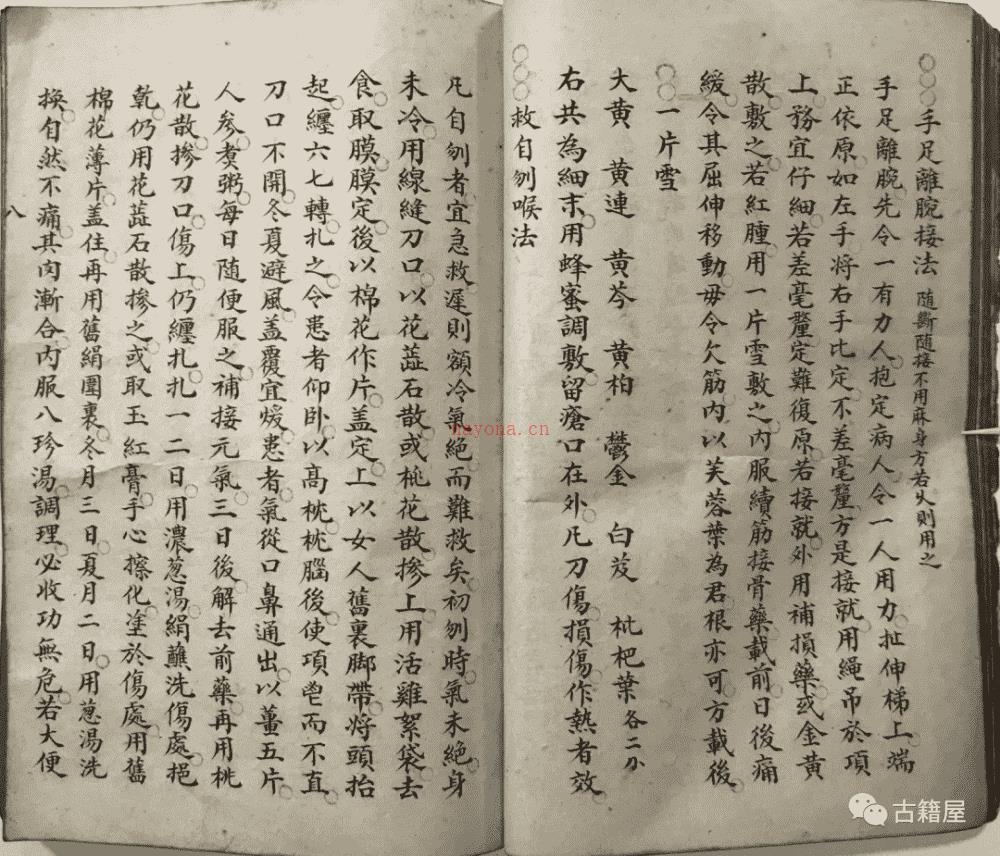 ○○○手足離腕接法 隨斷隨接不用麻身方若久則用之
手足離腕先令一有力人抱定病人令一人用力扯伸梯上端
正依原如左手將右手比定不差毫釐方是接就用繩吊於項
上務宜仔細若差毫釐定難復原若接就外用補損藥或金黃
散敷之若紅腫用一片雪敷之內服續筋接骨藥載前日後痛
緩令其屈伸移動毋令欠筋內以芙蓉葉為君根亦可方載後
○○一片雪
大黃 黃連 黃芩 黃柏 鬱金 白芨 枇杷葉各二小
右共為細末用蜂蜜調敷留瘡口在外凡刀傷損傷作熱者效
○○○救自刎喉法
凡自刎者宜急救遲則額冷氣絕而難救矣初刎時氣未絕身
未冷用線縫刀口以花蕋石散或桃花散摻上用活雞絮袋去
食取膜膜定後以棉花作片蓋定上以女人舊裹脚帶將頭抬
起纏六七轉扎之令患者仰卧以高枕枕腦後使項而不直
刀口不開冬夏避風蓋覆宜煖患者氣從口鼻通出以薑五片
人參煮粥每日隨便服之補接元氣三日後解去前藥再用桃
花散摻刀口傷上仍纏扎扎一二日用濃葱湯絹蘸洗傷處挹
乾仍用花蕋石散摻之或取玉紅膏手心擦化塗於傷處用舊
棉花薄片盖住再用舊絹圍裹冬月三日夏月二日用葱湯洗
換自然不痛其肉漸合內服八珍湯調理必收功無危若大便
八
nayona.cn
古籍屋